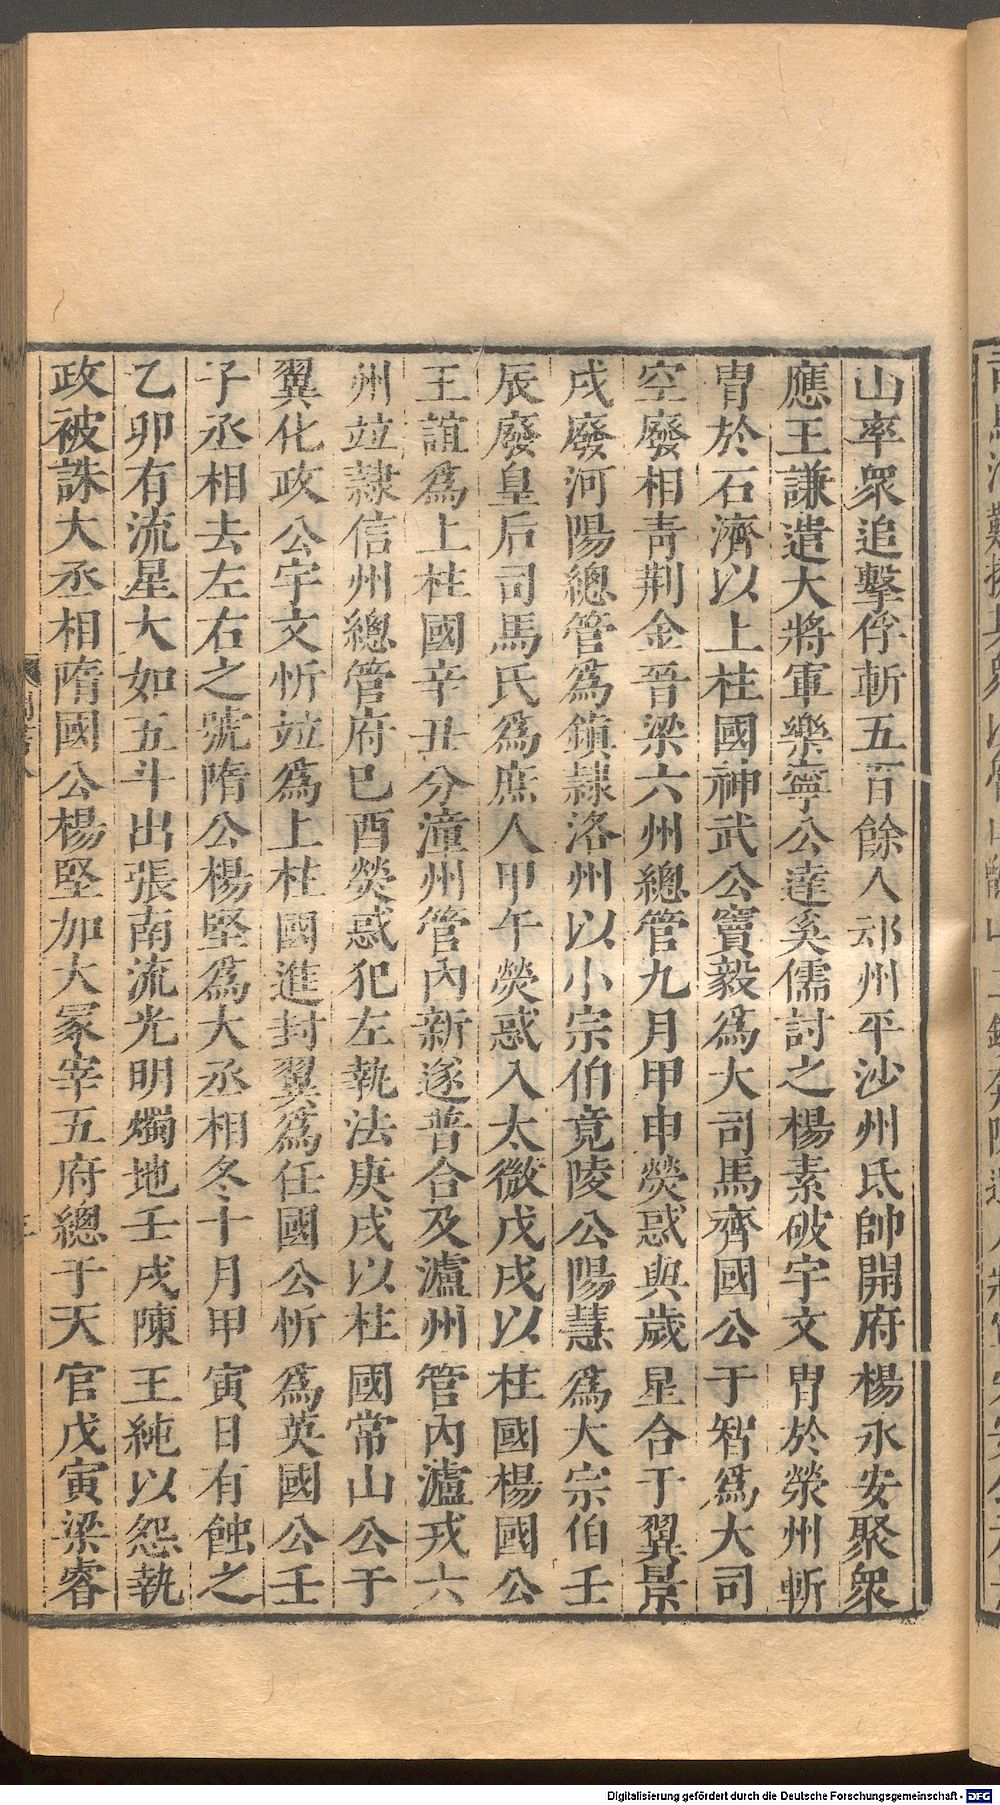 山率衆追擊俘斬五百餘人邛州平沙州氐帥開府楊永安聚衆
應王謙遣大將軍樂寧公達奚儒討之楊素破宇文胄於滎州斬
胄於石濟以上柱國神武公竇毅爲大司馬齊國公于智爲大司
空廢相青荆金晉梁六州總管九月甲申熒惑與歲星合于翼景
戌廢河陽總管爲鎮隷洛州以小宗伯竟陵公陽慧爲大宗伯壬
辰廢皇后司馬氏爲庶人甲午熒惑入太微戊戌以柱國楊國公
王誼爲上柱國辛丑分潼州管內新遂普合及瀘州管內瀘戎六
州竝隷信州總管府巳酉熒惑犯左執法庚戌以柱國常山公于
翼化政公宇文忻竝爲上柱國進封翼爲任國公忻爲英國公壬
子丞相去左右之號隋公楊堅爲大丞相冬十月甲寅日有蝕之
乙卯有流星大如五斗出張南流光明燭地壬戌陳王純以怨執
政被誅大丞相隋國公楊堅加大冢宰五府總于天官戊寅梁睿
Digitalisierung gefördert durch die Deutsche Forschungsgemeinschaft - DFG